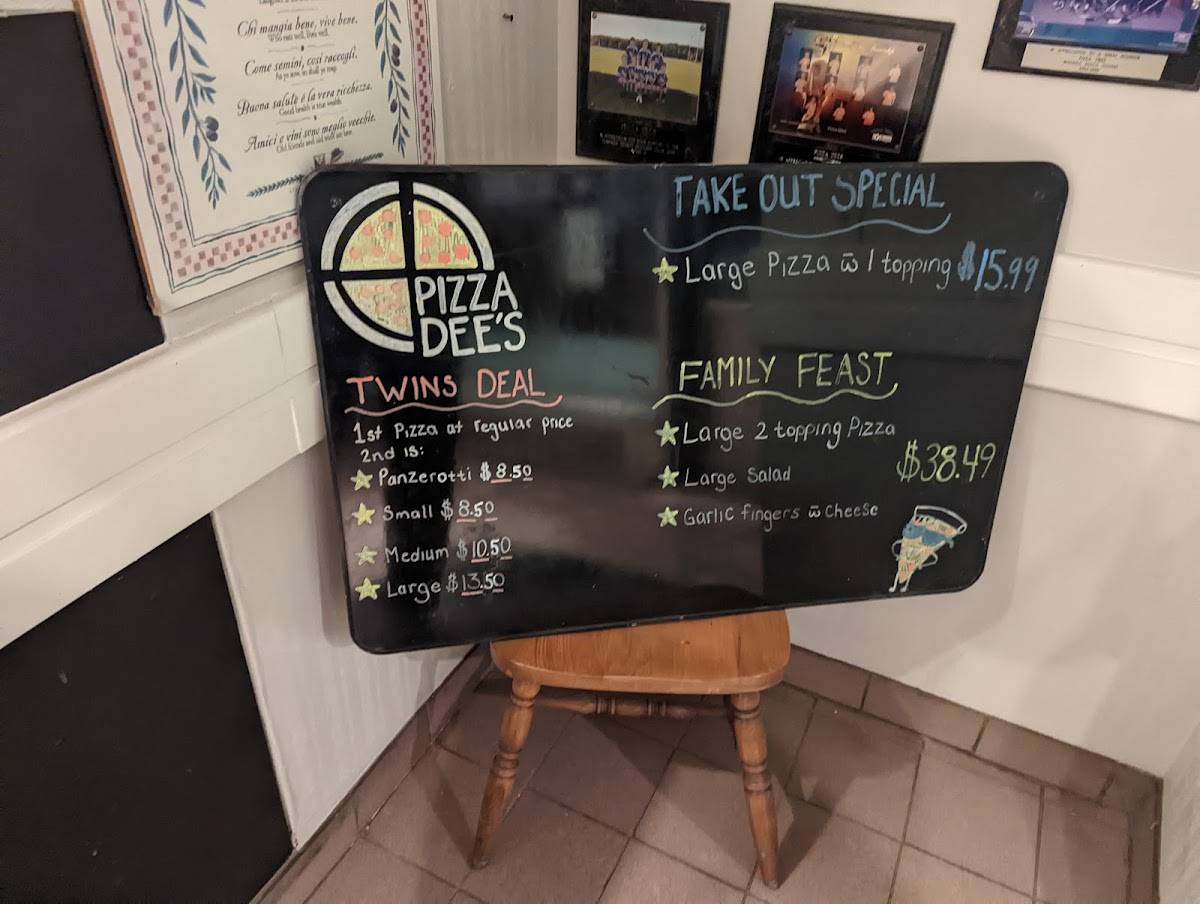 Chi mangia bene, vive bene.
Who eats well, lives well.
Come semini, così raccogli.
As ye sow, so shall ye reap.
Buona salute é la vera ricchezza.
Good health is true wealth.
Amici e vini sono meglio vecchie.
Old friends and old wine are best.
PIZZA
DEE'S
TWINS DEAL
1st Pizza at regular price
2nd is:
Panzerotti $8.50
Small $8.50
Medium $10.50
Large $13.50
TAKE OUT SPECIAL
Large Pizza w̅ 1 topping $15.99
FAMILY FEAST
Large 2 topping Pizza
Large Salad
Garlic fingers w̅ cheese
$38.49